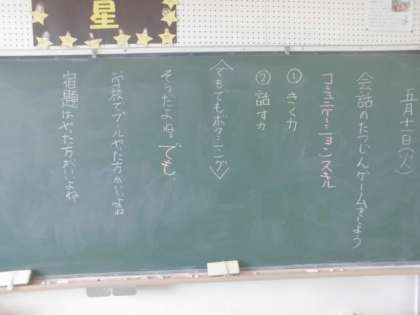 星
五月十一日(火)
会話のたつじんゲームをしよう
コミュニケーションスキル
①きく力
②話す力
〈でもでもボクシング〉
そうだよね。でも、
学校でプールやった方がいいよね
宿題はやった方がいいよね